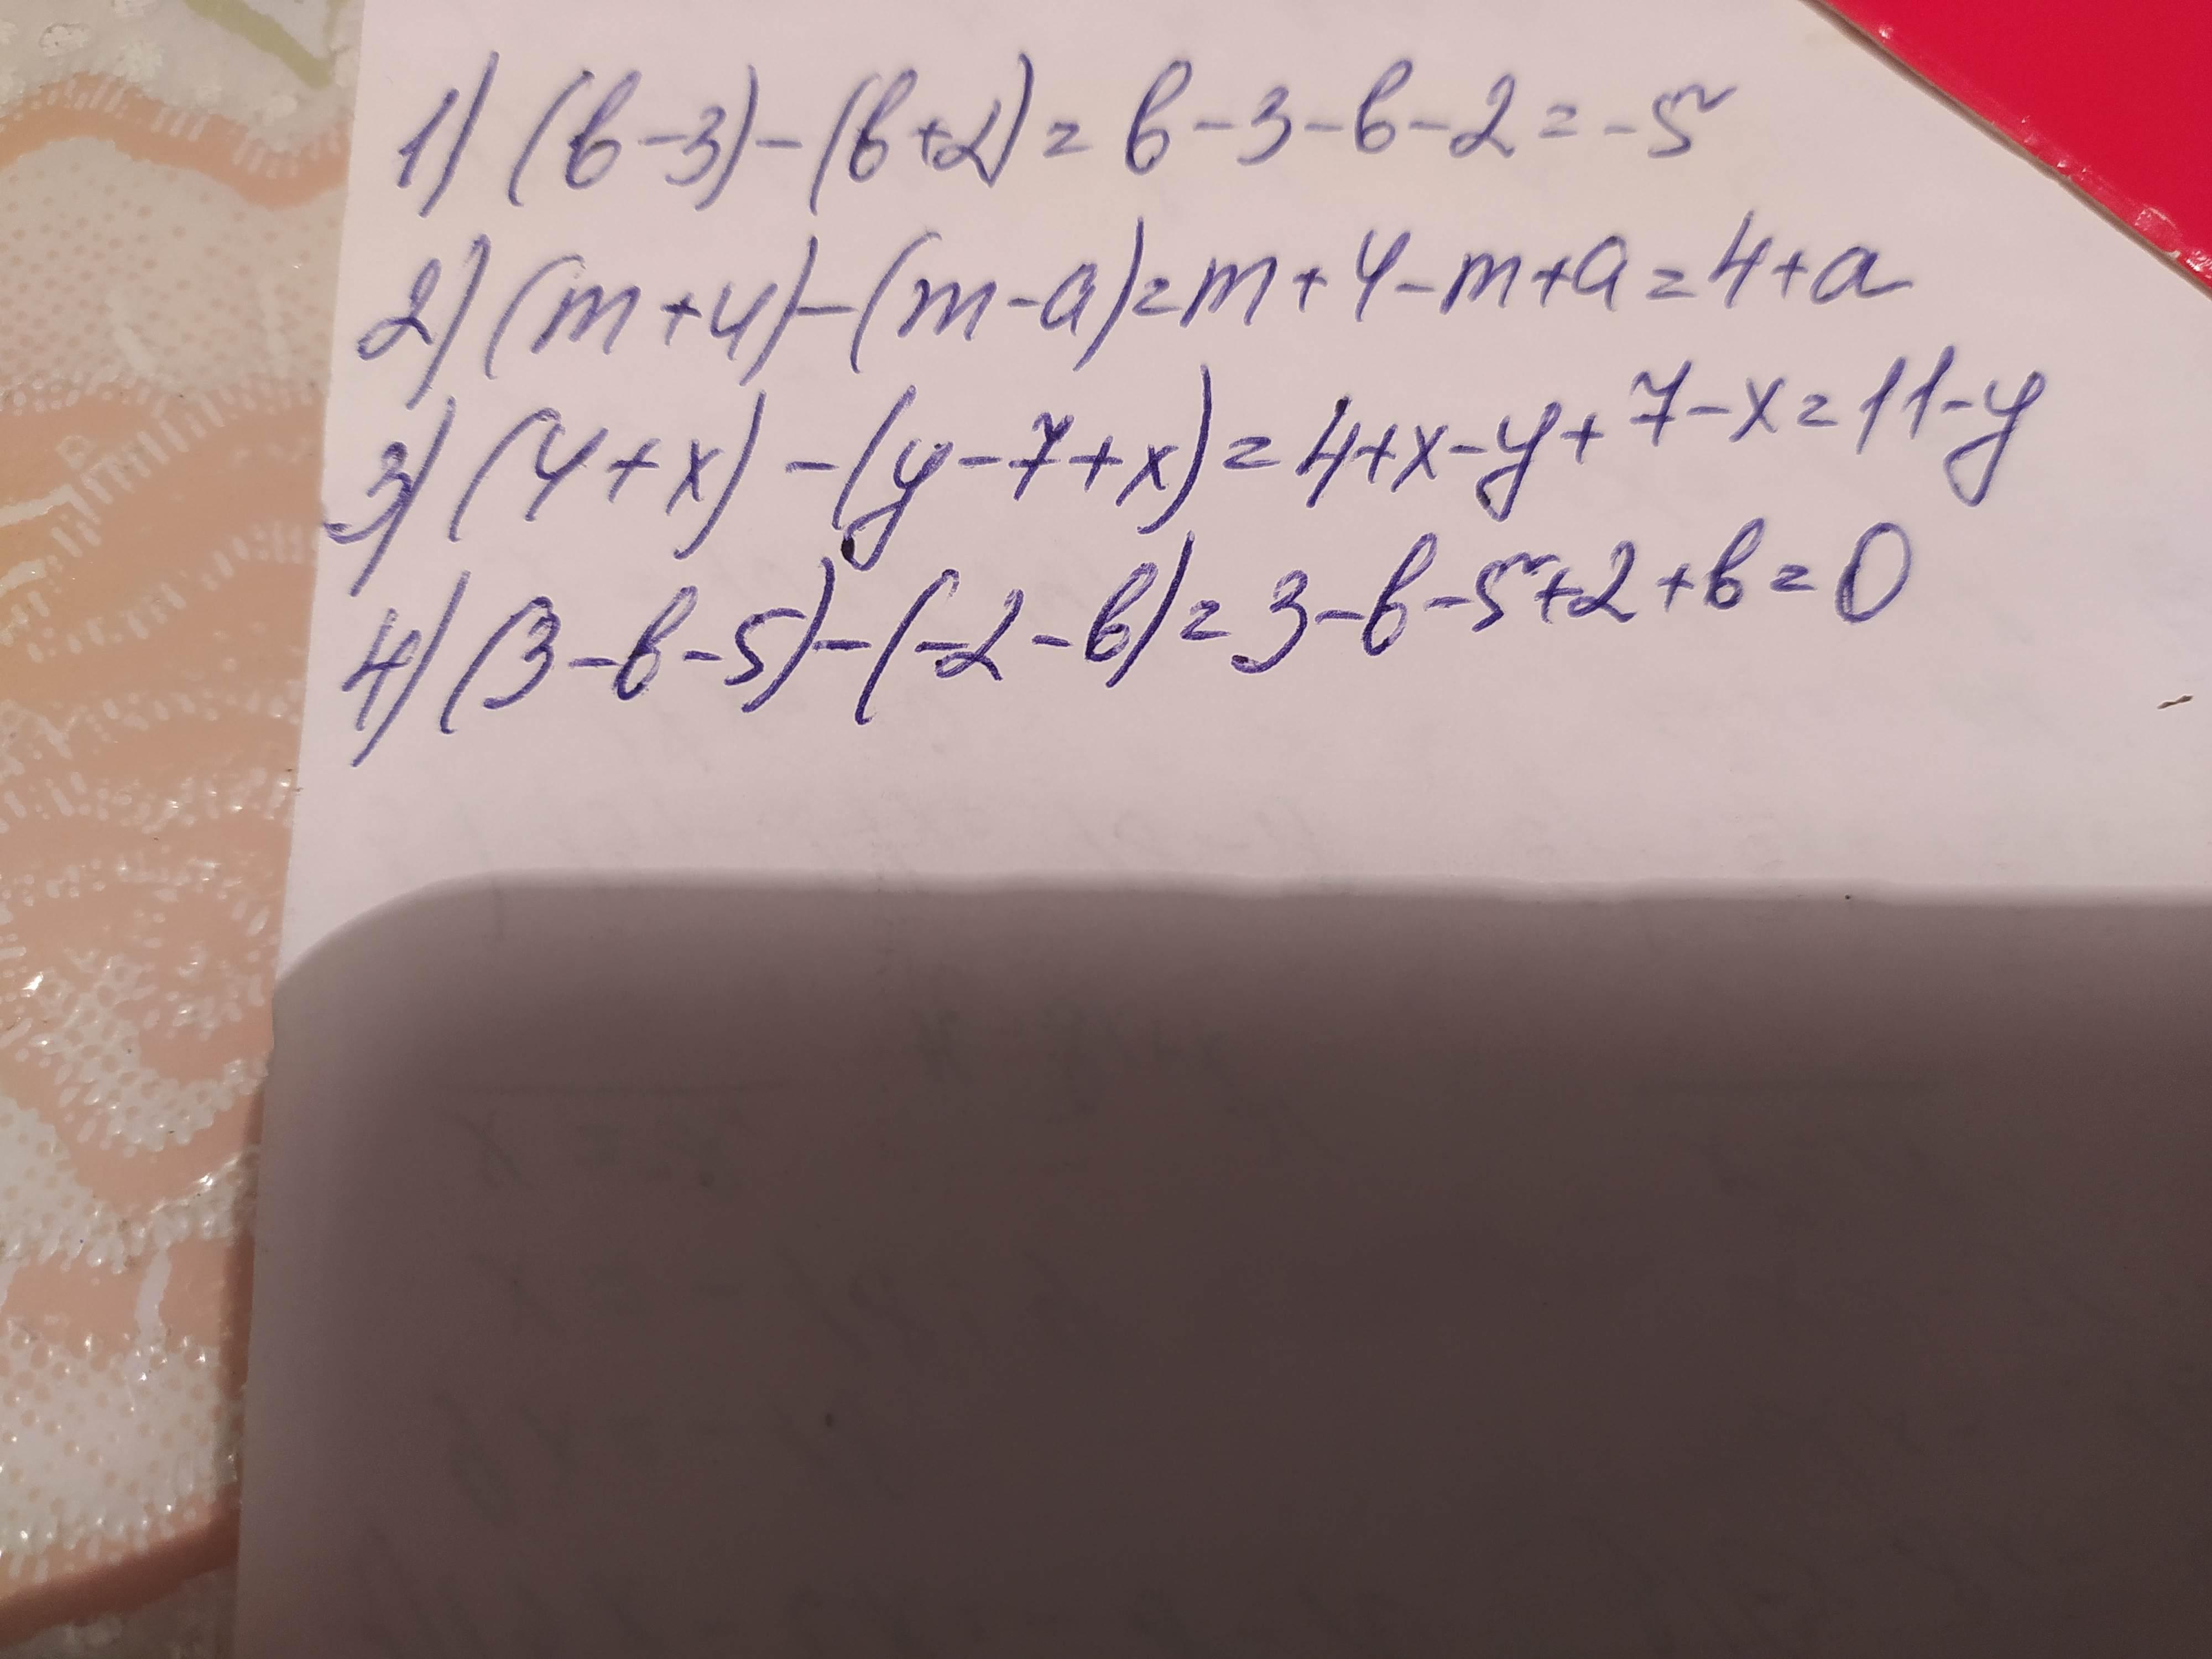 1) (b-3)-(b+2)=b-3-b-2=-5
2) (m+4)-(m-a)=m+4-m+a=4+a
3) (4+x)-(y-7+x)=4+x-y+7-x=11-y
4) (3-b-5)-(-2-b)=3-b-5+2+b=0